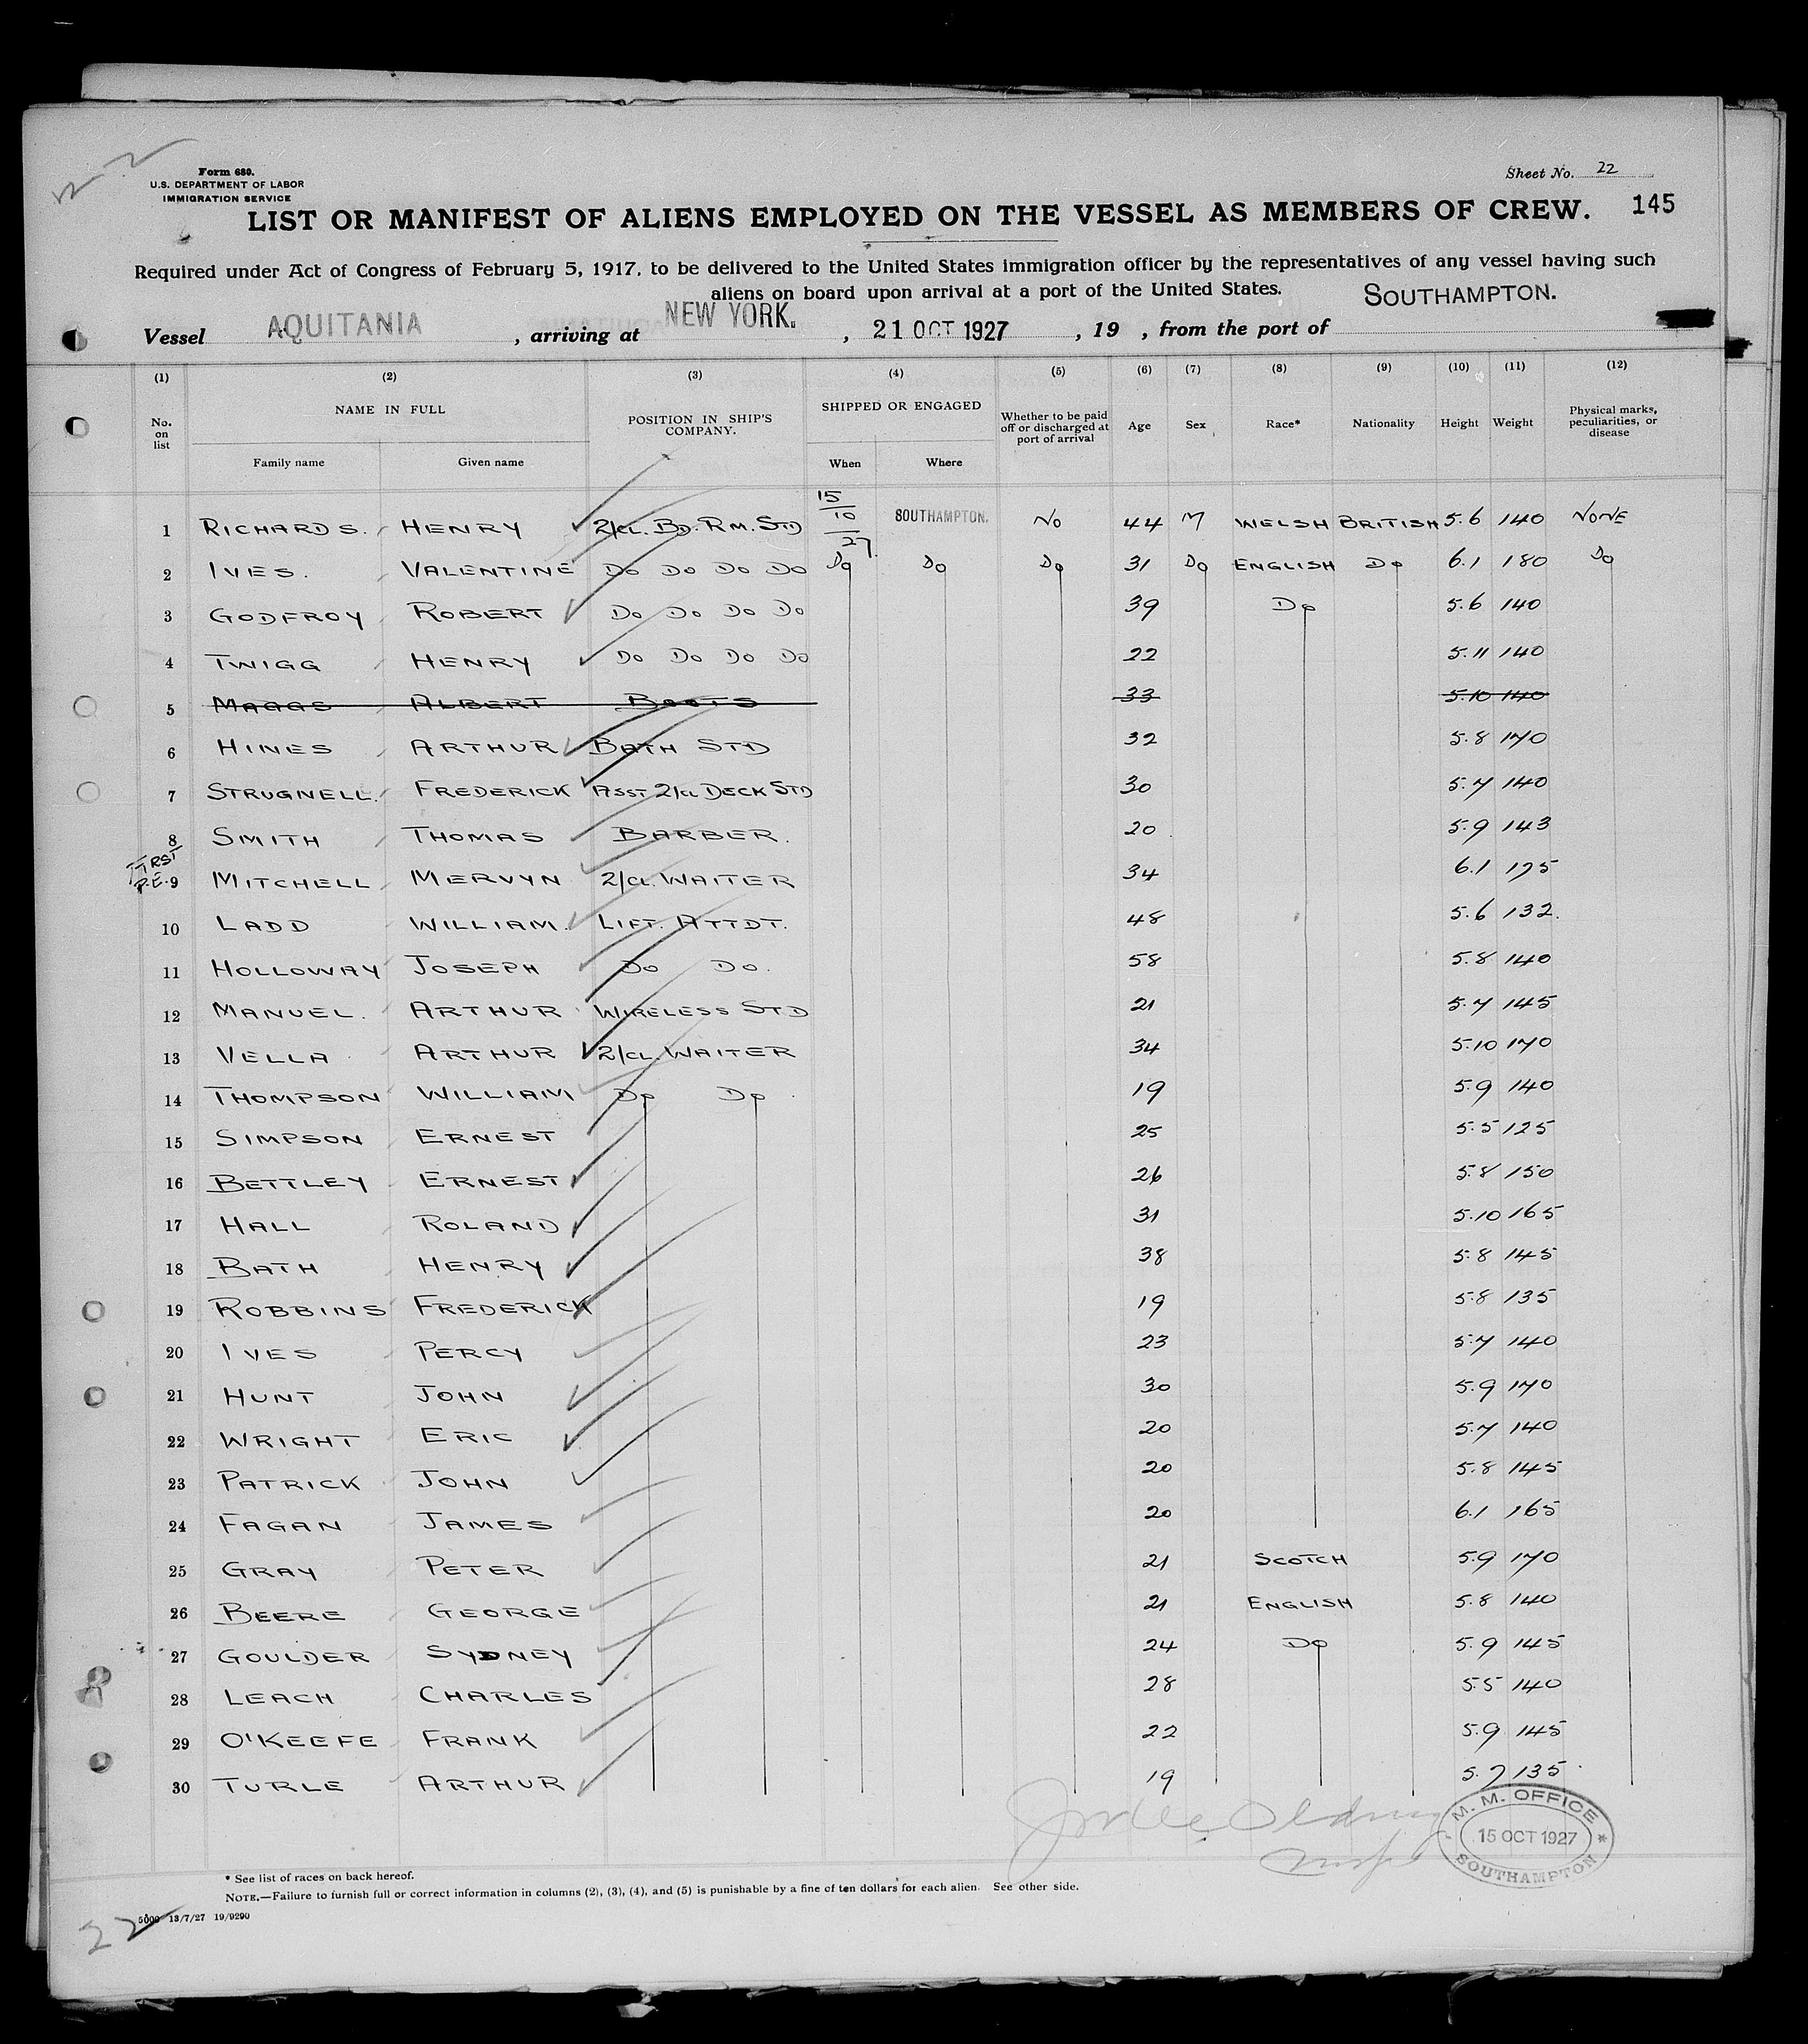 Form 680.
U.S. DEPARTMENT OF LABOR
IMMIGRATION SERVICE
Sheet No. 22
LIST OR MANIFEST OF ALIENS EMPLOYED ON THE VESSEL AS MEMBERS OF CREW. 145
Required under Act of Congress of February 5, 1917, to be delivered to the United States immigration officer by the representatives of any vessel having such
aliens on board upon arrival at a port of the United States.
Vessel AQUITANIA, arriving at NEW YORK., 21 OCT 1927, 19 , from the port of SOUTHAMPTON.
(1) (2) (3) (4) (5) (6) (7) (8) (9) (10) (11) (12)
No. on list NAME IN FULL POSITION IN SHIP'S COMPANY. SHIPPED OR ENGAGED Whether to be paid off or discharged at port of arrival Age Sex Race* Nationality Height Weight Physical marks, peculiarities, or disease
Family name Given name When Where
1 RICHARDS. HENRY 2/CL. BD. RM. STD 15/10/27. SOUTHAMPTON. NO 44 M WELSH BRITISH 5.6 140 NONE
2 IVES. VALENTINE DO DO DO DO DO DO DO 31 DO ENGLISH DO 6.1 180 DO
3 GODFROY ROBERT DO DO DO DO 39 DO 5.6 140
4 TWIGG HENRY DO DO DO DO 22 5.11 140
5 MAGGS ALBERT BOOTS 33 5.10 140
6 HINES ARTHUR BATH STD 32 5.8 170
7 STRUGNELL. FREDERICK ASST 2/CL DECK STD 30 5.7 140
8 SMITH THOMAS BARBER. 20 5.9 143
9 MITCHELL MERVYN 2/CL. WAITER 34 6.1 175
10 LADD WILLIAM. LIFT. ATTDT. 48 5.6 132.
11 HOLLOWAY JOSEPH DO DO. 58 5.8 140
12 MANUEL. ARTHUR WIRELESS STD 21 5.7 145
13 VELLA ARTHUR 2/CL. WAITER 34 5.10 170
14 THOMPSON WILLIAM DO DO 19 5.9 140
15 SIMPSON ERNEST 25 5.5 125
16 BETTLEY ERNEST 26 5.8 150
17 HALL ROLAND 31 5.10 165
18 BATH HENRY 38 5.8 145
19 ROBBINS FREDERICK 19 5.8 135
20 IVES PERCY 23 5.7 140
21 HUNT JOHN 30 5.9 170
22 WRIGHT ERIC 20 5.7 140
23 PATRICK JOHN 20 5.8 145
24 FAGAN JAMES 20 6.1 165
25 GRAY PETER 21 SCOTCH 5.9 170
26 BEERE GEORGE 21 ENGLISH 5.8 140
27 GOULDER SYDNEY 24 DO 5.9 145
28 LEACH CHARLES 28 5.5 140
29 O'KEEFE FRANK 22 5.9 145
30 TURLE ARTHUR 19 5.7 135
M. M. OFFICE
15 OCT 1927
SOUTHAMPTON
* See list of races on back hereof.
NOTE.—Failure to furnish full or correct information in columns (2), (3), (4), and (5) is punishable by a fine of ten dollars for each alien. See other side.
5000 13/7/27 19/9290
22